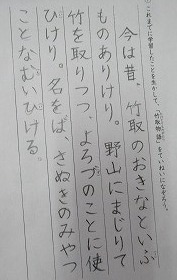 これまでに学習したことを生かして、「竹取物語」をていねいになぞろう。
今は昔、竹取のおきなといふ
ものありけり。野山にまじりて
竹を取りつつ、よろづのことに使
ひけり。名をば、さぬきのみやつ
ことなむいひける。